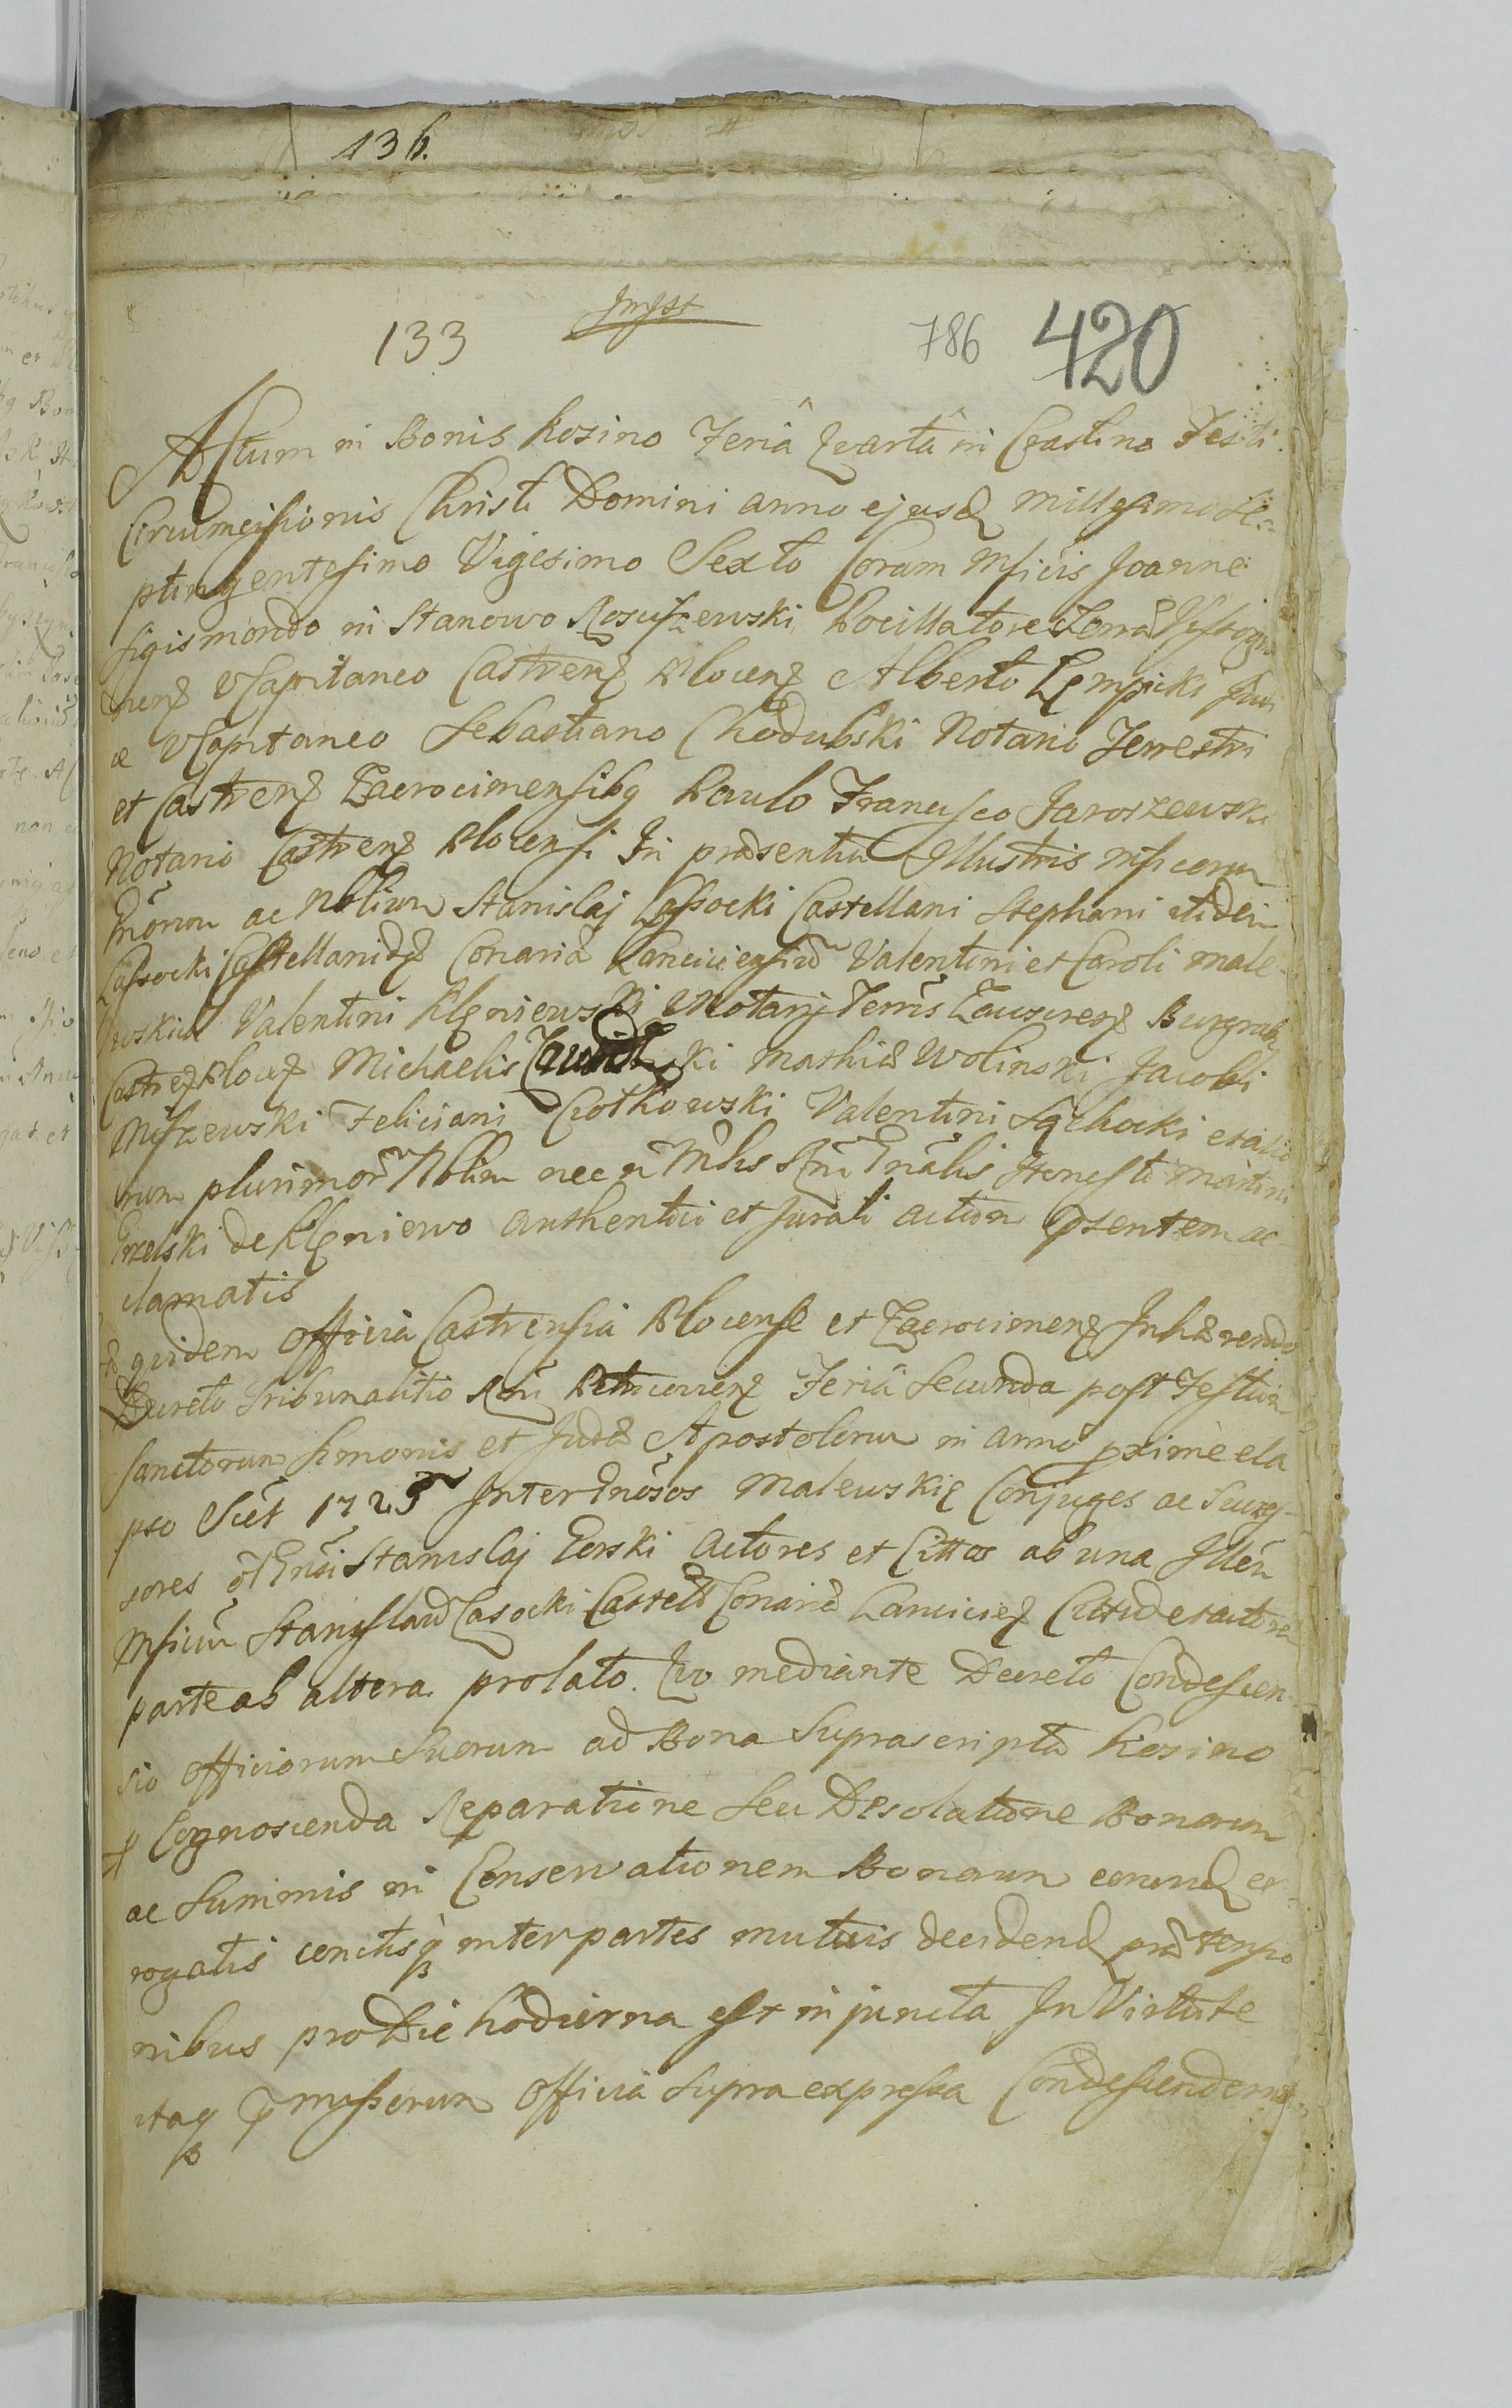 136.
133
786 420
Actum in Bonis Kosino Feriâ Qvartâ in Crastino Festi
Circumcisionis Christi Domini anno ejusd Millesimo Se-
ptingentesimo Vigesimo Sexto Coram Mficis Joanne
Sigismondo in Stanowo Rosciszewski Pocillatore Terrae Vissogro
nens VCapitaneo Castrens Plocens Alberto Lempicki Judi
ce VCapitaneo Sebastiano Chodubski Notario Terrestri
et Castrens Zacrocimensibq Paulo Francisco Jaroszewski
Notario Castrens Plocensi In praesentia Illustris Mficorum
Gnõrum ac Nblium Stanislaj Lassocki Castellani Stephani itidem
Lassocki Castellanidae Conariae Lanciciensium Valentini et Caroli Male-
wskich Valentini Klęniewski Notarij Terris Burgrabij
Castrens Plocens Michaelis Mathiae Wolinski Jacobi
Miszewski Feliciani Ciotkowski Valentini Sęchocki et alio
rum plurimor Nblium nec ñ Mtlis Rni Gnãlis Honesti Martini
de Klęniewo authentici et Jurati actum psentem ac
clamatis
Et quidem Officia Castrensia Plocense et Zacrocimens Inhaerendo
Decreto Tribunalitio Rni Petricoviens Feria Secunda post Festum
Sanctorum Simonis et Judae Apostolorum in anno pximè ela
pso Scilt 1725 Inter Gnõsos Malewskie Conjuges ac Succes-
sores õl Gnõsi Stanislaj Gorski Actores et Cittos ab una Illém
Mficum Stanislaum Lasocki Castell Conariae Lancicien Cittum et actorem
parte ab altera prolato. Qvo mediante Decreto Condescen
sio Officiorum Suorum ad Bona Suprascripta Kosino
p Cognoscenda Reparatione Seu Desolatione Bonorum
ac Summis in Conservationem Bonorum eorund er-
rogatis cunctisq inter partes mutuis decidend tempo
ribus pro Die hodierna est injuncta In Virtute
itaq pmissorum Officia supra expressa Condescenderunt